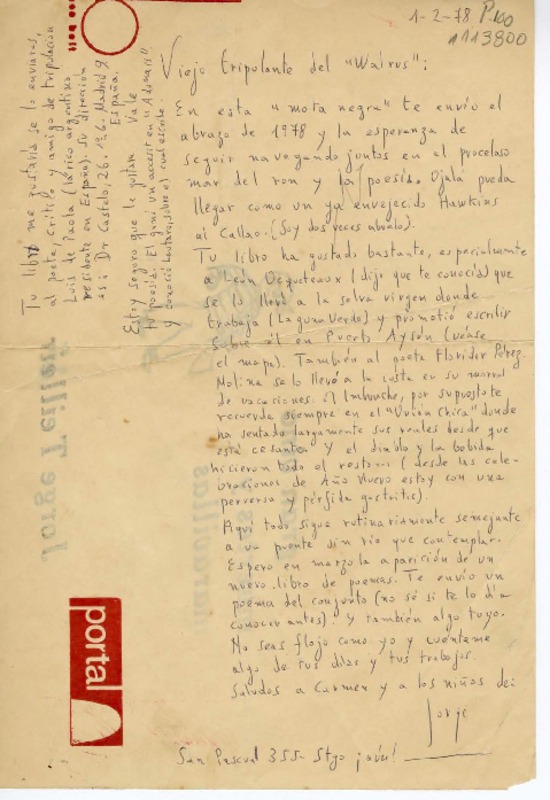 1-2-78
P.100
1113800
Viejo tripulante del "Walrus":
En esta "mota negra" te envío el
abrazo de 1978 y la esperanza de
seguir navegando juntos en el proceloso
mar del ron y la poesía. Ojalá pueda
llegar como un ya envejecido Hawkins
al Callao. (Soy dos veces abuelo).
Tu libro ha gustado bastante, especialmente
a León Ocqueteaux (dijo que te conocía) que
se lo llevó a la selva virgen donde
trabaja (Laguna Verde) y prometió escribir
sobre él en Puerto Aysén (véase
el mapa). También al poeta Floridor Pérez.
Molina se lo llevó a la costa en su morral
de vacaciones. El Imbunche, por supuesto te
recuerda siempre en el "Unión Chica" donde
ha sentado largamente sus reales desde que
está cesante. Y el diablo y la bebida
hicieron todo el resto... (desde las cele-
braciones de Año Nuevo estoy con una
perversa y pérfida gastritis).
Aquí todo sigue rutinariamente semejante
a un puente sin río que contemplar.
Espero en marzo la aparición de un
nuevo libro de poemas. Te envío un
poema del conjunto (no sé si te lo di a
conocer antes). Y también algo tuyo.
No seas flojo como yo y cuéntame
algo de tus días y tus trabajos.
Saludos a Carmen y a los niños de:
Jorge
San Pascual 355- Stgo ¡aún!
Tu libro me gustaría se lo enviaras,
al poeta, crítico y amigo de tripulación
Luis de Paola (lárico argentino
residente en España). Su dirección
es: Dr Castelo, 26. 1º6. Madrid 9
España.
Estoy seguro que le gustará. Vale
tu poesía. El ganó un accesit en "Adonais"
y conoció bastante, sobre el cual escribe.
Jorge Teillier
maravillas
portal